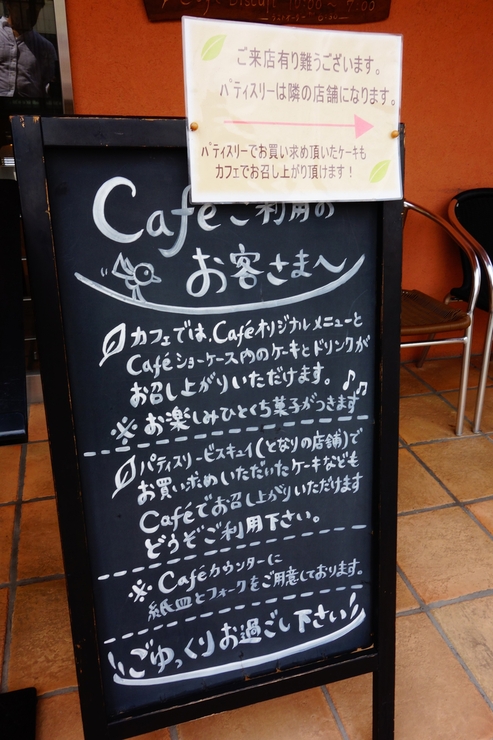 Café Biscuit 10:00~7:00
ご来店有り難うございます。
パティスリーは隣の店舗になります。
パティスリーでお買い求め頂いたケーキも
カフェでお召し上がり頂けます！
Caféご利用の
お客さまへ
カフェでは、Caféオリジナルメニューと
Caféショーケース内のケーキとドリンクが
お召し上がりいただけます。
※お楽しみひとくち菓子がつきます
パティスリービスキュイ(となりの店舗)で
お買い求めいただいたケーキなども
Caféでお召し上がりいただけます
どうぞご利用下さい。
※Caféカウンターに
紙皿とフォークをご用意しております。
ごゆっくりお過ごし下さい！